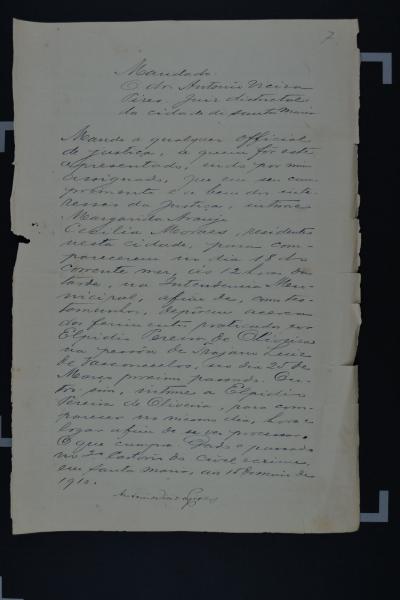 7
Mandado
O dr. Antonio Vieira
Pires. Juiz districtal
da cidade de Santa Maria
Mando a qualquer official
de justiça, a quem for este
apresentado, indo por mim
assignado, que em seu cum-
primento e a bem dos inte-
resses da justiça, intime
Margarida Araujo
Cecilia Moraes, residentes
nesta cidade, para com-
parecerem no dia 18 do
corrente mez, ás 12 horas da
tarde, na Intendencia Mu-
nicipal, afim de, como tes-
temunhas, deporem acerca
dos ferimentos praticados por
Elpidio Pereira de Oliveira
na pessôa de Trajano Luiz
de Vasconcellos, no dia 25 de
Março proximo passado. Ou-
tro sim, intime a Elpidio
Pereira de Oliveira, para com-
parecer no mesmo dia, hora e
logar afim de se ver processar.
O que cumpra. Dado e passado
no 2º Cartorio do civel e crime,
em Santa Maria, aos 16 de
191
Antonio Vieira Pires